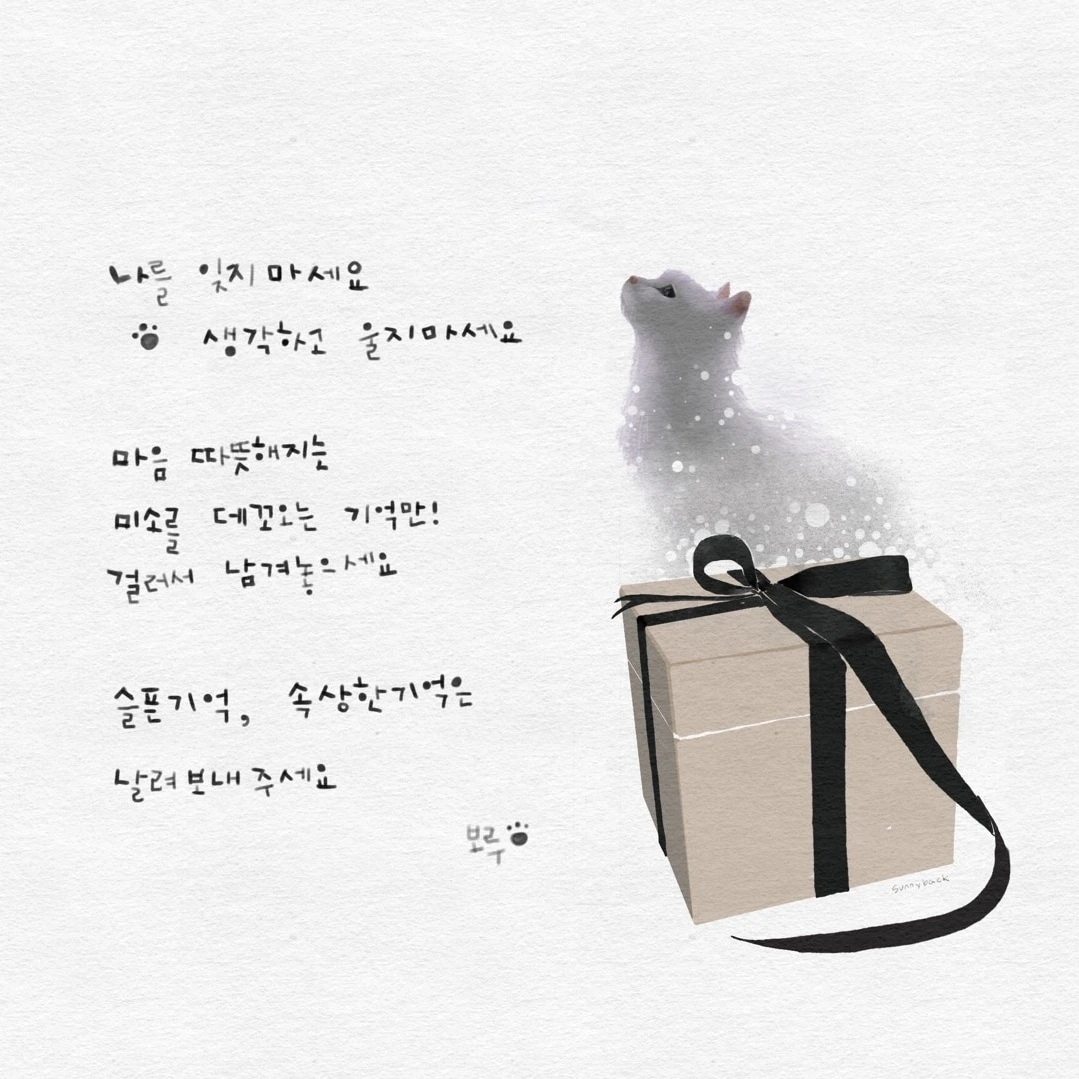 나를 잊지마세요
생각하고 울지마세요
마음 따뜻해지는
미소를 데꼬오는 기억만!
걸러서 남겨놓으세요
슬픈기억, 속상한기억은
날려보내주세요
보루
sunnyback